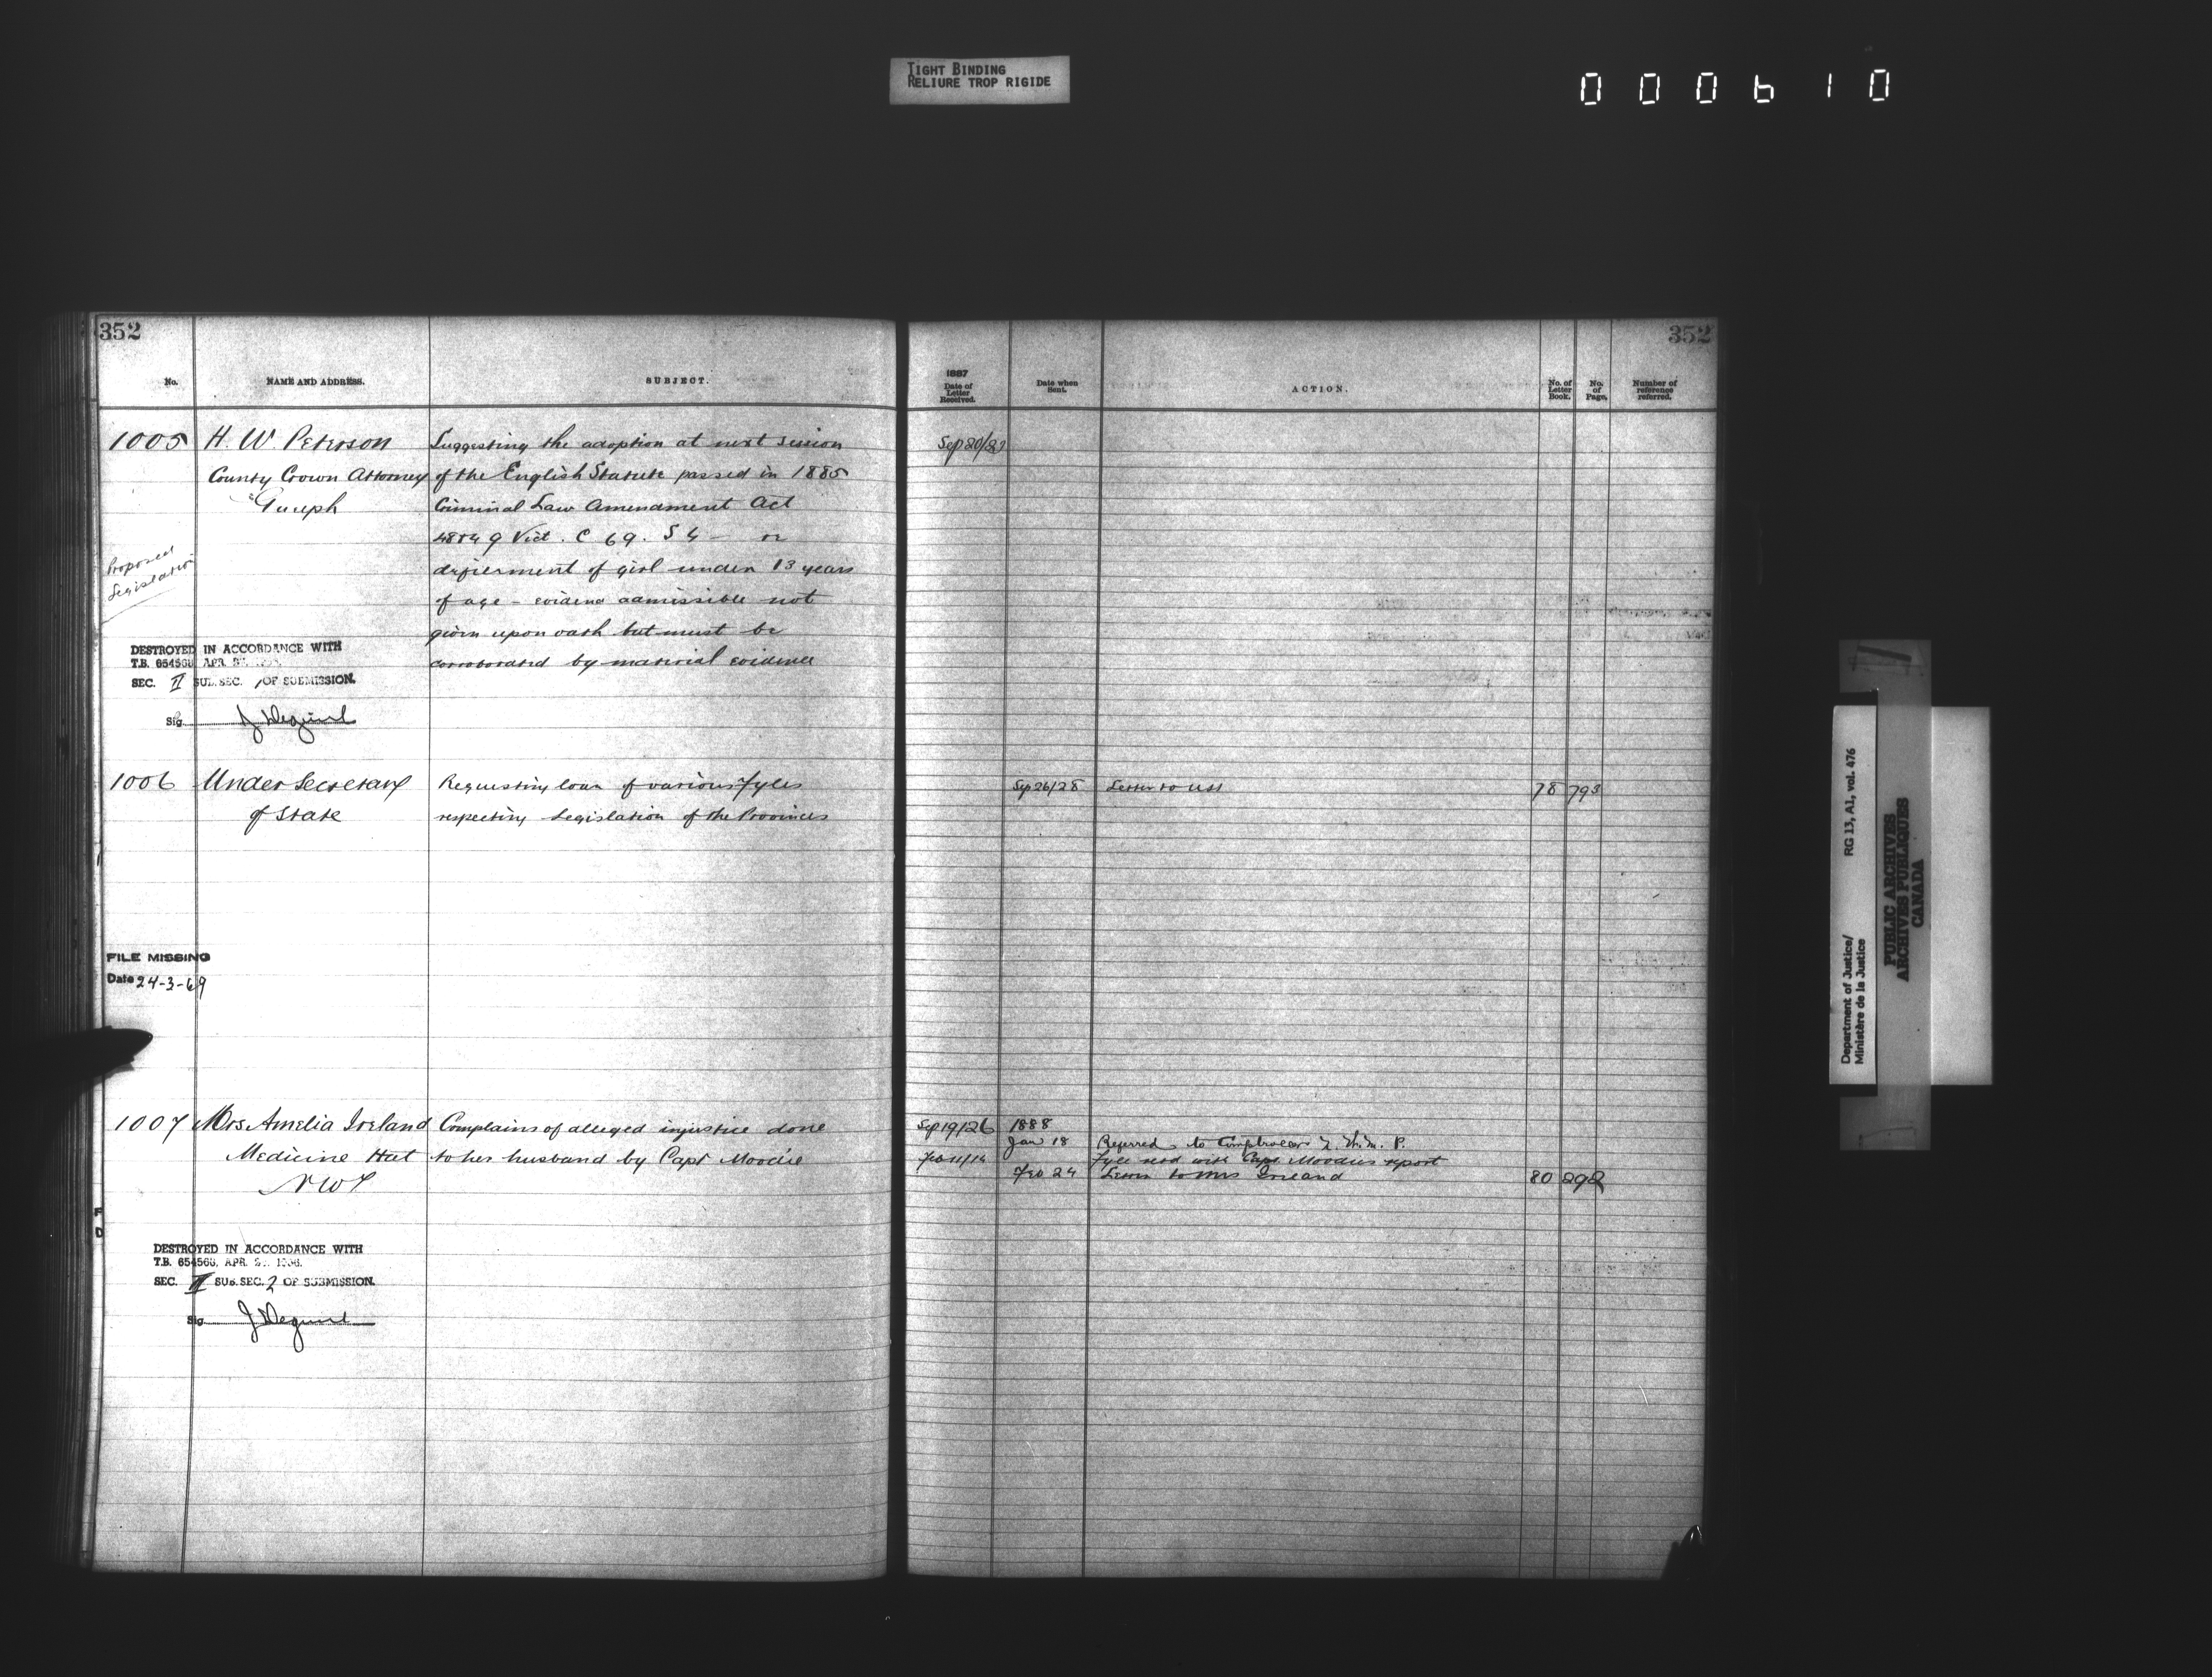 TIGHT BINDING
RELIURE TROP RIGIDE
000610
352
No.
NAME AND ADDRESS.
SUBJECT.
1005
H. W. Peterson
County Crown Attorney
Guelph
Proposed
Legislation
Suggesting the adoption at next session
of the English Statute passed in 1885
Criminal Law Amendment Act
48 & 49 Vict. C 69. S 4 — or
defilement of girl under 13 years
of age - evidence admissible not
given upon oath but must be
corroborated by material evidence
DESTROYED IN ACCORDANCE WITH
T.B. 654568 APR.
SEC. II SUB. SEC. 1 OF SUBMISSION.
Sig.
1006
Under Secretary
of State
Requesting loan of various Fyles
respecting Legislation of the Provinces
FILE MISSING
Date 24-3-69
1007
Mrs Amelia Ireland
Medicine Hat
N W T
Complains of alleged injustice done
to her husband by Capt Moodie
DESTROYED IN ACCORDANCE WITH
T.B. 654568, APR.
SEC. II SUB. SEC. 2 OF SUBMISSION.
Sig.
352
1887
Date of
Letter
Received.
Date when
Sent.
ACTION.
No. of
Letter
Book.
No.
of
Page.
Number of
reference
referred.
Sep 20/
Sep 26/28 Letter to USS 78 793
Sep 19/26 1888
Jan 18 Referred to Comptroller N. W. M. P.
Feb 11/14 Fyle retd with Capt Moodies report
Feb 24 Letter to Mrs Ireland 80 292
Department of Justice/
Ministère de la Justice
RG 13, A1, vol. 476
PUBLIC ARCHIVES
ARCHIVES PUBLIQUES
CANADA